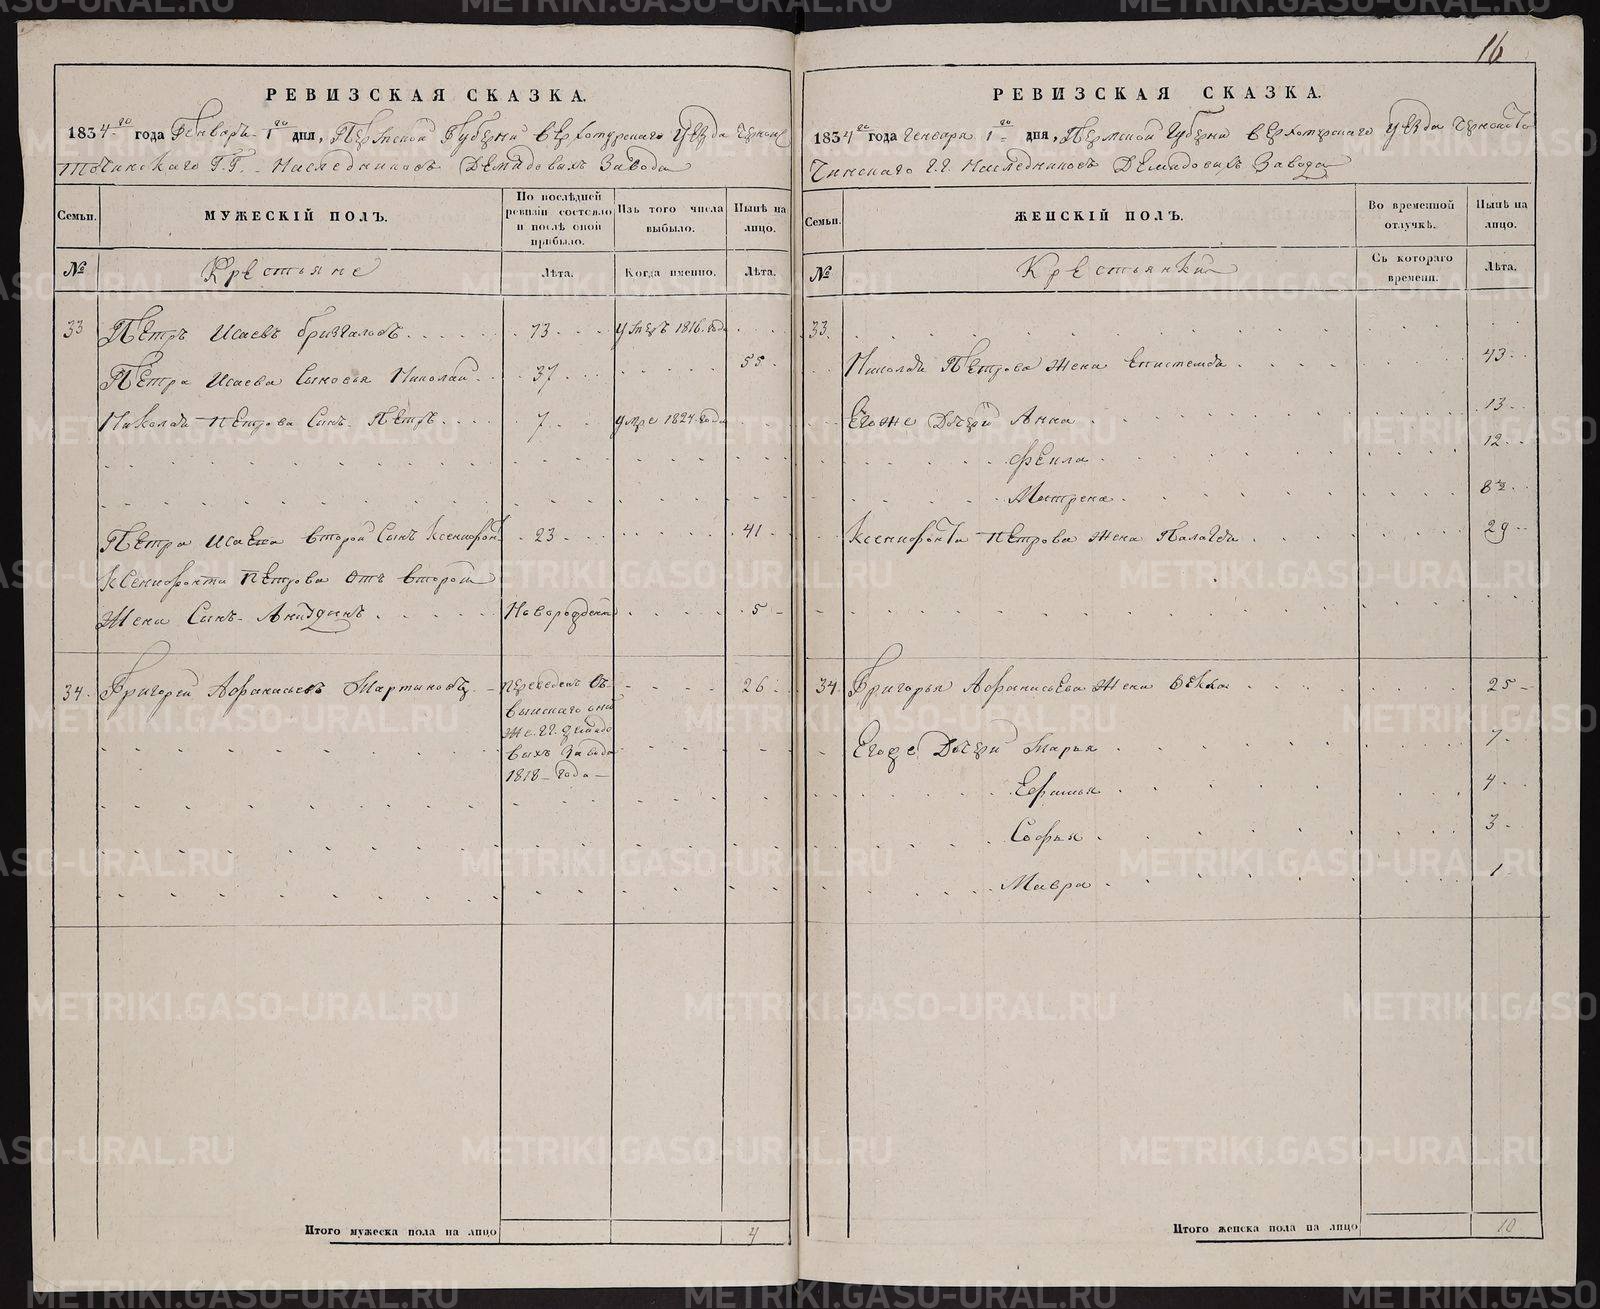 16
РЕВИЗСКАЯ СКАЗКА.
1834-го года Генваря 1го дня, Пермской Губернии Верхотурского уезда Черноис
точинского Г.Г. Наследниковъ Демидовыхъ Завода
Семьи.
МУЖЕСКІЙ ПОЛЪ.
По послѣдней ревизіи состояло и послѣ оной прибыло.
Изъ того числа выбыло.
Нынѣ на лицо.
№
Крестьяне
Лѣта.
Когда именно.
Лѣта.
33 Петръ Исаевъ 73 умеръ 1816. года
Петра Исаева сыновья Николай 37 55
Николая Петрова сынъ Петръ 7 умре 1824 года
Петра Исаева второй сынъ Ксенофонтъ 23 41
Ксенофонта Петрова отъ второй
жены сынъ Новорожденъ 5
34. Григорей Афанасьевъ Мартыновъ переведенъ съ 26
выйскаго они
же. Г.Г. Демидо
выхъ завода
1818 года
Итого мужеска пола на лицо 4
РЕВИЗСКАЯ СКАЗКА.
1834го года Генваря 1го дня, Пермской Губернии Верхотурского уезда Черноисто
чинского Г.Г. Наследниковъ Демидовыхъ Завода
Семьи.
ЖЕНСКІЙ ПОЛЪ.
Во временной отлучкѣ.
Нынѣ на лицо.
№
Крестьянки
Съ котораго времени.
Лѣта.
33.
Николая Петрова жена Епистемья 43
Егоже дочери Анна 13
Фекла 12
Матрена 8
Ксенофонта Петрова жена Палагея 29
34 Григорья Афанасьева жена Фекла 25
Егоже дочери Марья 7
Ефимья 4
Софья 3
Мавра 1
Итого женска пола на лицо 10
METRIKI.GASO-URAL.RU